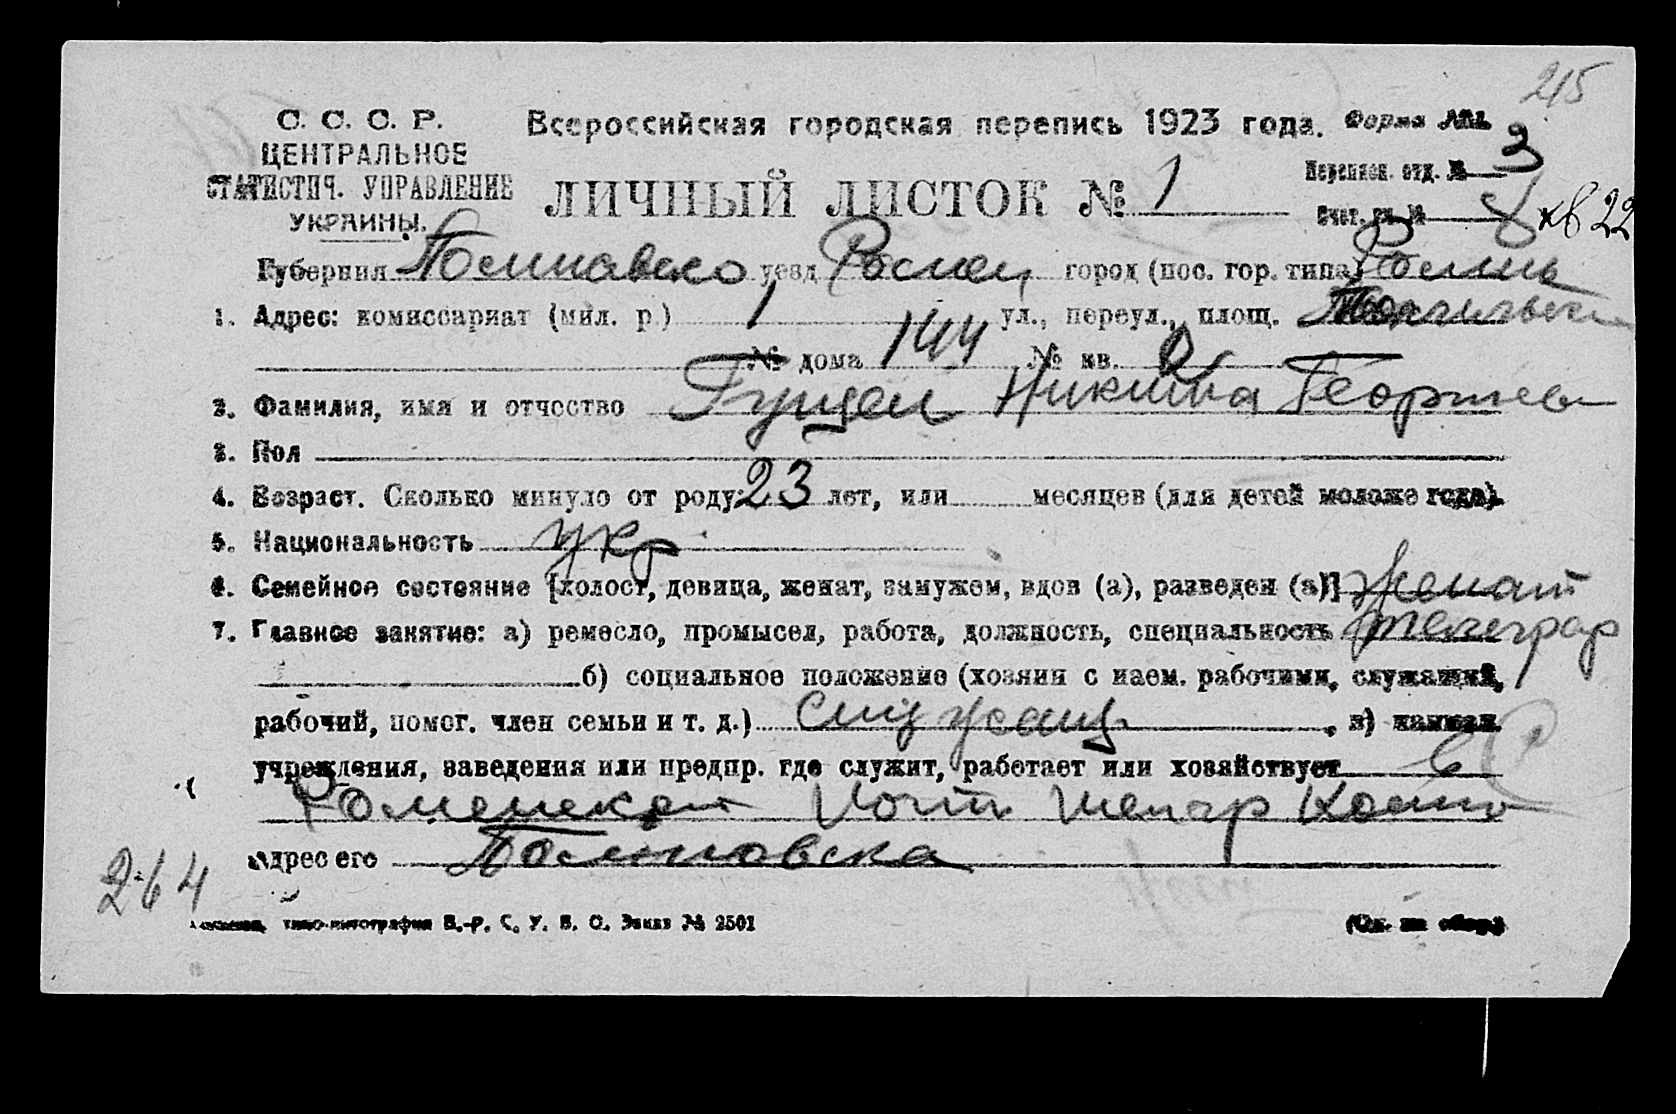 215
С. С. С. Р. Всероссийская городская перепись 1923 года. Форма №1
ЦЕНТРАЛЬНОЕ
СТАТИСТИЧ. УПРАВЛЕНИЕ
УКРАИНЫ.
ЛИЧНЫЙ ЛИСТОК № 1
Переписн. отд. № 3
Счет. уч. № кв 22
Губерния Полтавско уезд Ромен город (пос. гор. типа) Ромны
1. Адрес: комиссариат (мил. р.) 1 ул., переул., площ.
№ дома 144 № кв.
2. Фамилия, имя и отчество Гуцел Никита Георгиев
3. Пол
4. Возраст. Сколько минуло от роду 23 лет, или месяцев (для детей моложе года).
5. Национальность укр
6. Семейное состояние [холост, девица, женат, замужем, вдов (а), разведен (а)] Женат
7. Главное занятие: а) ремесло, промысел, работа, должность, специальность телеграф
б) социальное положение (хозяин с наем. рабочими, служащий,
рабочий, помог. член семьи и т. д.) Служащ , в) наимен.
учреждения, заведения или предпр. где служит, работает или хозяйствует
Роменская Почт Телегр Конто
адрес его Полтавска
264
типо-литография В.-Р. С. У. В. О. Заказ № 2501 (См. на обор.)